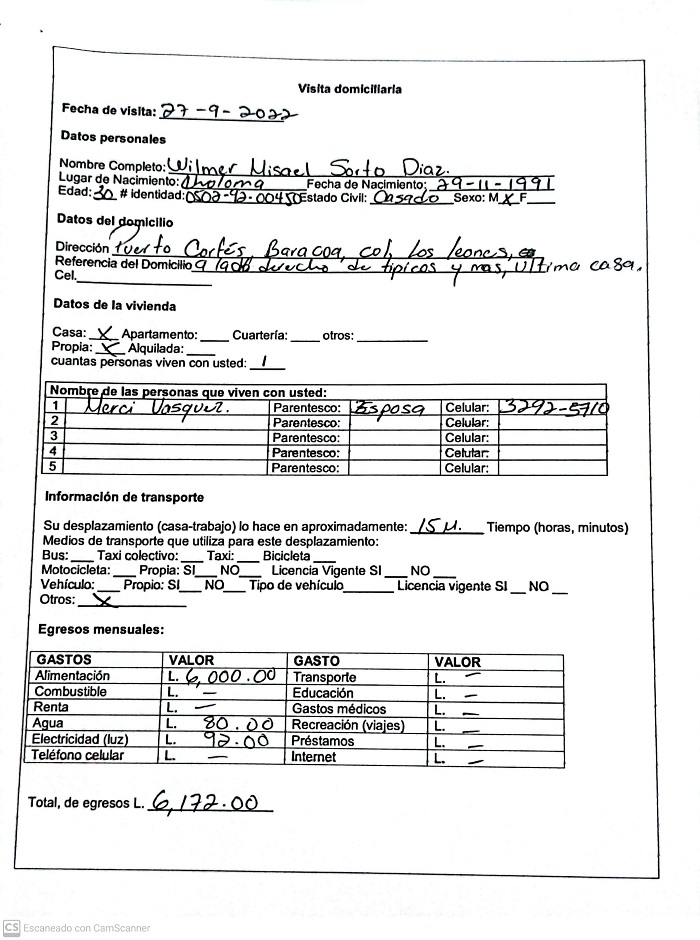 Visita domiciliaria
Fecha de visita: 27-9-2022
Datos personales
Nombre Completo: Wilmer Misael Sorto Diaz.
Lugar de Nacimiento: Choloma Fecha de Nacimiento: 29-11-1991
Edad: 30 # identidad: 0502-92-00450 Estado Civil: Casado Sexo: M X F
Datos del domicilio
Dirección Puerto Cortés, Baracoa, col, los leones,
Referencia del Domicilio a lado derecho de tipicos y mas, ultima casa.
Cel.
Datos de la vivienda
Casa: X Apartamento: Cuartería: otros:
Propia: X Alquilada:
cuantas personas viven con usted: 1
Nombre de las personas que viven con usted:
1 Merci Vasquez. Parentesco: Esposa Celular: 3292-5710
2 Parentesco: Celular:
3 Parentesco: Celular:
4 Parentesco: Celular:
5 Parentesco: Celular:
Información de transporte
Su desplazamiento (casa-trabajo) lo hace en aproximadamente: 15 M. Tiempo (horas, minutos)
Medios de transporte que utiliza para este desplazamiento:
Bus: Taxi colectivo: Taxi: Bicicleta
Motocicleta: Propia: SI NO Licencia Vigente SI NO
Vehículo: Propio: SI NO Tipo de vehículo Licencia vigente SI NO
Otros: X
Egresos mensuales:
GASTOS VALOR GASTO VALOR
Alimentación L. 6,000.00 Transporte L. —
Combustible L. — Educación L. —
Renta L. — Gastos médicos L. —
Agua L. 80.00 Recreación (viajes) L. —
Electricidad (luz) L. 92.00 Préstamos L. —
Teléfono celular L. — Internet L. —
Total, de egresos L. 6,172.00
CS Escaneado con CamScanner